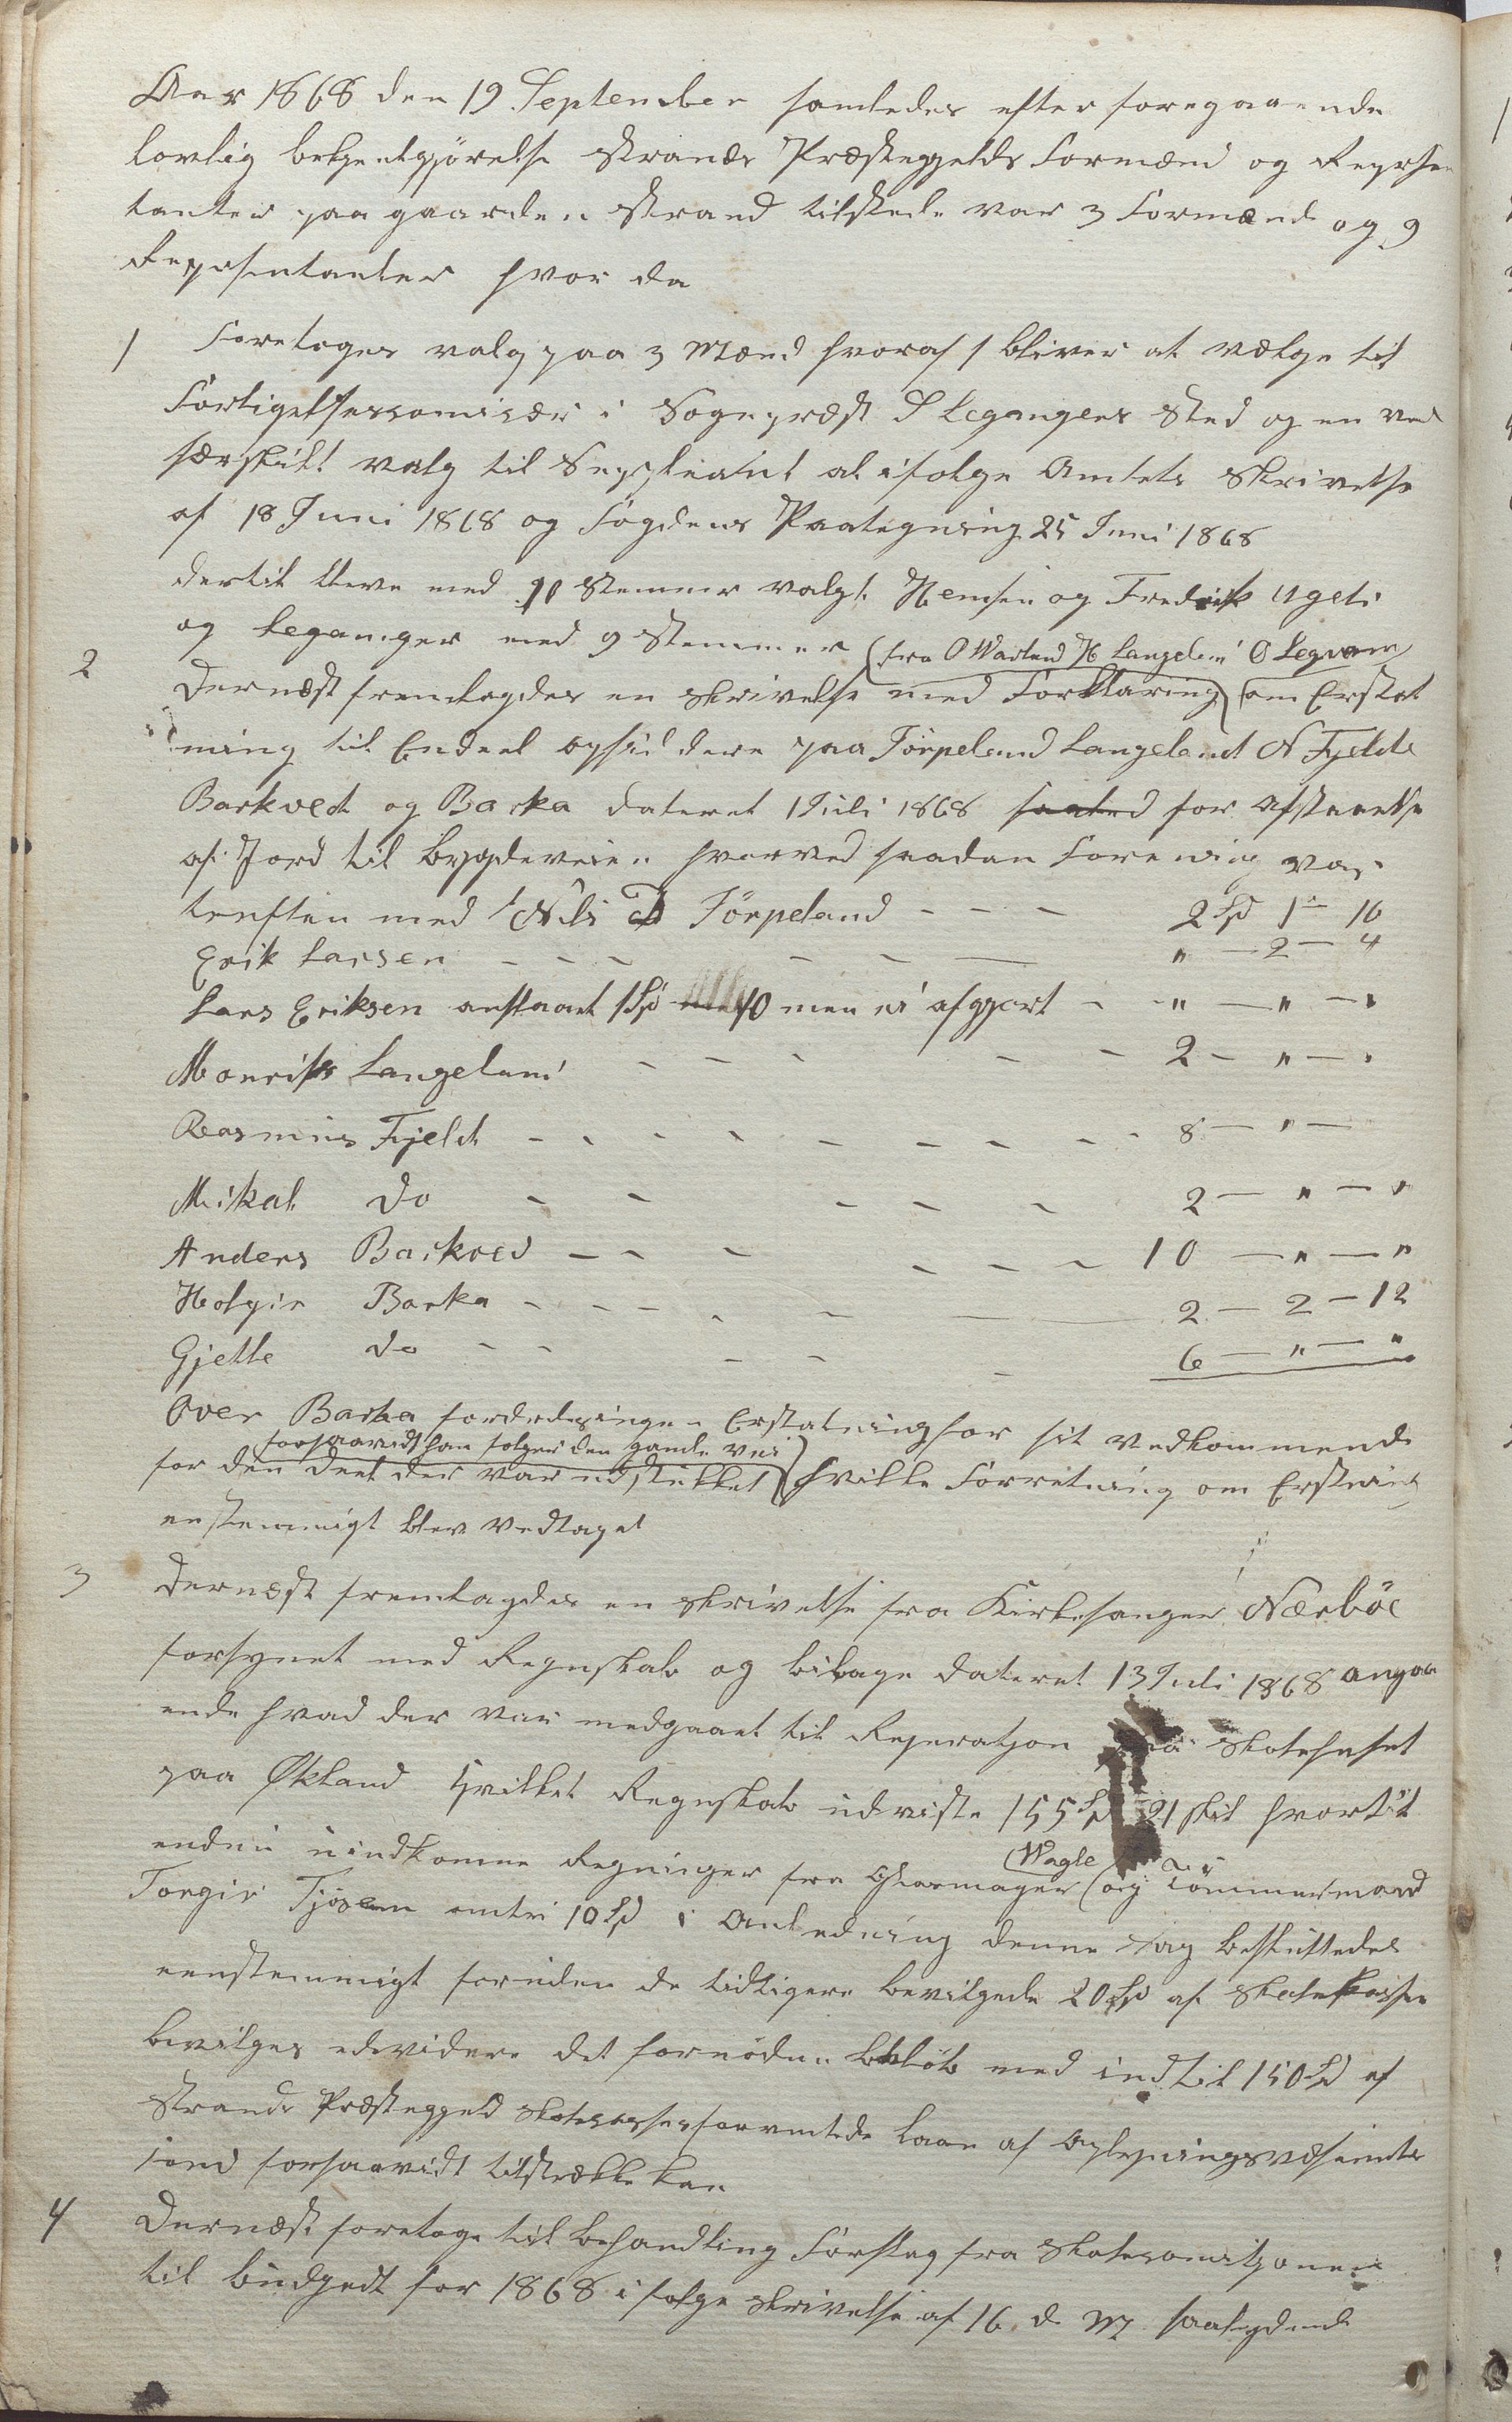 Aar 1868 den 19 September samledes efter foregaaende
lovlig bekjendtgjørelse Strands Præstegjelds Formænd og Repræsen
tanter paa gaarden Strand tilstede var 3 Formænd og 9
Repræsentanter hvor da
1 Foretoges valg paa 3 Mænd hvoraf 1 bliver at vælge til
Forligelsescomisær i Sognepræst S Legangers Sted og en ved
særskilt valg til Suppleant alt ifølge Amtets Skrivelse
af 18 Juni 1868 og Fogdens Paategning 25 Juni 1868
dertil bleve med 10 Stemmer valgt Hensen og Fredrik
og Leganger med 9 Stemmer
(fra O Warland H Langeland O Legvam
2 Dernæst fremlagdes en Skrivelse med Forklaring) om Erstat
ning til Endeel opsiddere paa Törpeland Langeland N Fjelde
Barkved og Barka dateret 1 Juli 1868 for Afstaaelse
af Jord til bygdeveien hvorved saadan Forening var
truffen med Nils Törpeland - - - 2 Spd 1 - 16
Erik Larsen - - - - - - " - 2 - 4
Lars Eriksen anslaaet 1 Spd men ei afgjort - " - " - "
Mourits Langeland - - - - - 2 - " - "
Rasmus Fjelde - - - - - - - - 8 - " -
Mikal do - - - - - 2 - " - "
Anders Barkved - - - - - - 10 - " - "
Holgir Barka - - - - - - 2 - 2 - 12
Gjelle do - - - - - 6 - " - "
Over Barka fordrede ingen Erstatning for sit Vedkommende
forsaavidt han følger den gamle vei
for den Deel der var udstukket) hvilke Forretning om Erstatning
enstemmigt blev Vedtaget
3 Dernæst fremlagdes en Skrivelse fra Kirkesanger Nærböe
forsynet med Regnskab og bilage dateret 13 Juli 1868 angaa
ende hvad der var medgaaet til Reperatjon paa Skolehuset
paa Økland hvilket Regnskab udviste 155 Spd 21 skil hvortil
Wagle
endnu uindkomne Regninger fra Glasmager (og Tömmermand
Torgir Tjösem omtr 10 Spd i Anledning denne Sag besluttedes
eenstemmigt foruden de tidligere bevilgede 20 Spd af Skolekassen
bevilges udvidere det fornødne beløb med indtil 150 Spd af
Strands Præstegjeld Skolekasses laan af Oplysningsvæsenets
fond forsaavidt tilstrække kan
4 Dernæst foretoges til behandling Forslag fra Skolecomitjonen
til büdgedt for 1868 ifølge Skrivelse af 16 d M saalydende